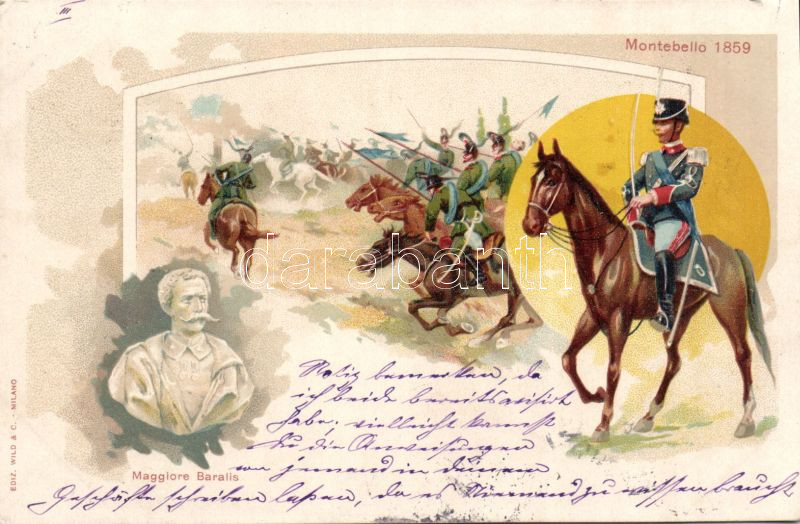 III
Montebello 1859
darabanth
Notiz bemerken, da
ich beide bereits avisirt
habe, vielleicht kannst
Du die Anweisungen
von jemand in deinem
Maggiore Baralis
Geschäfte schreiben laßen, da es Niemand zu wissen braucht
EDIZ. WILD & C. - MILANO